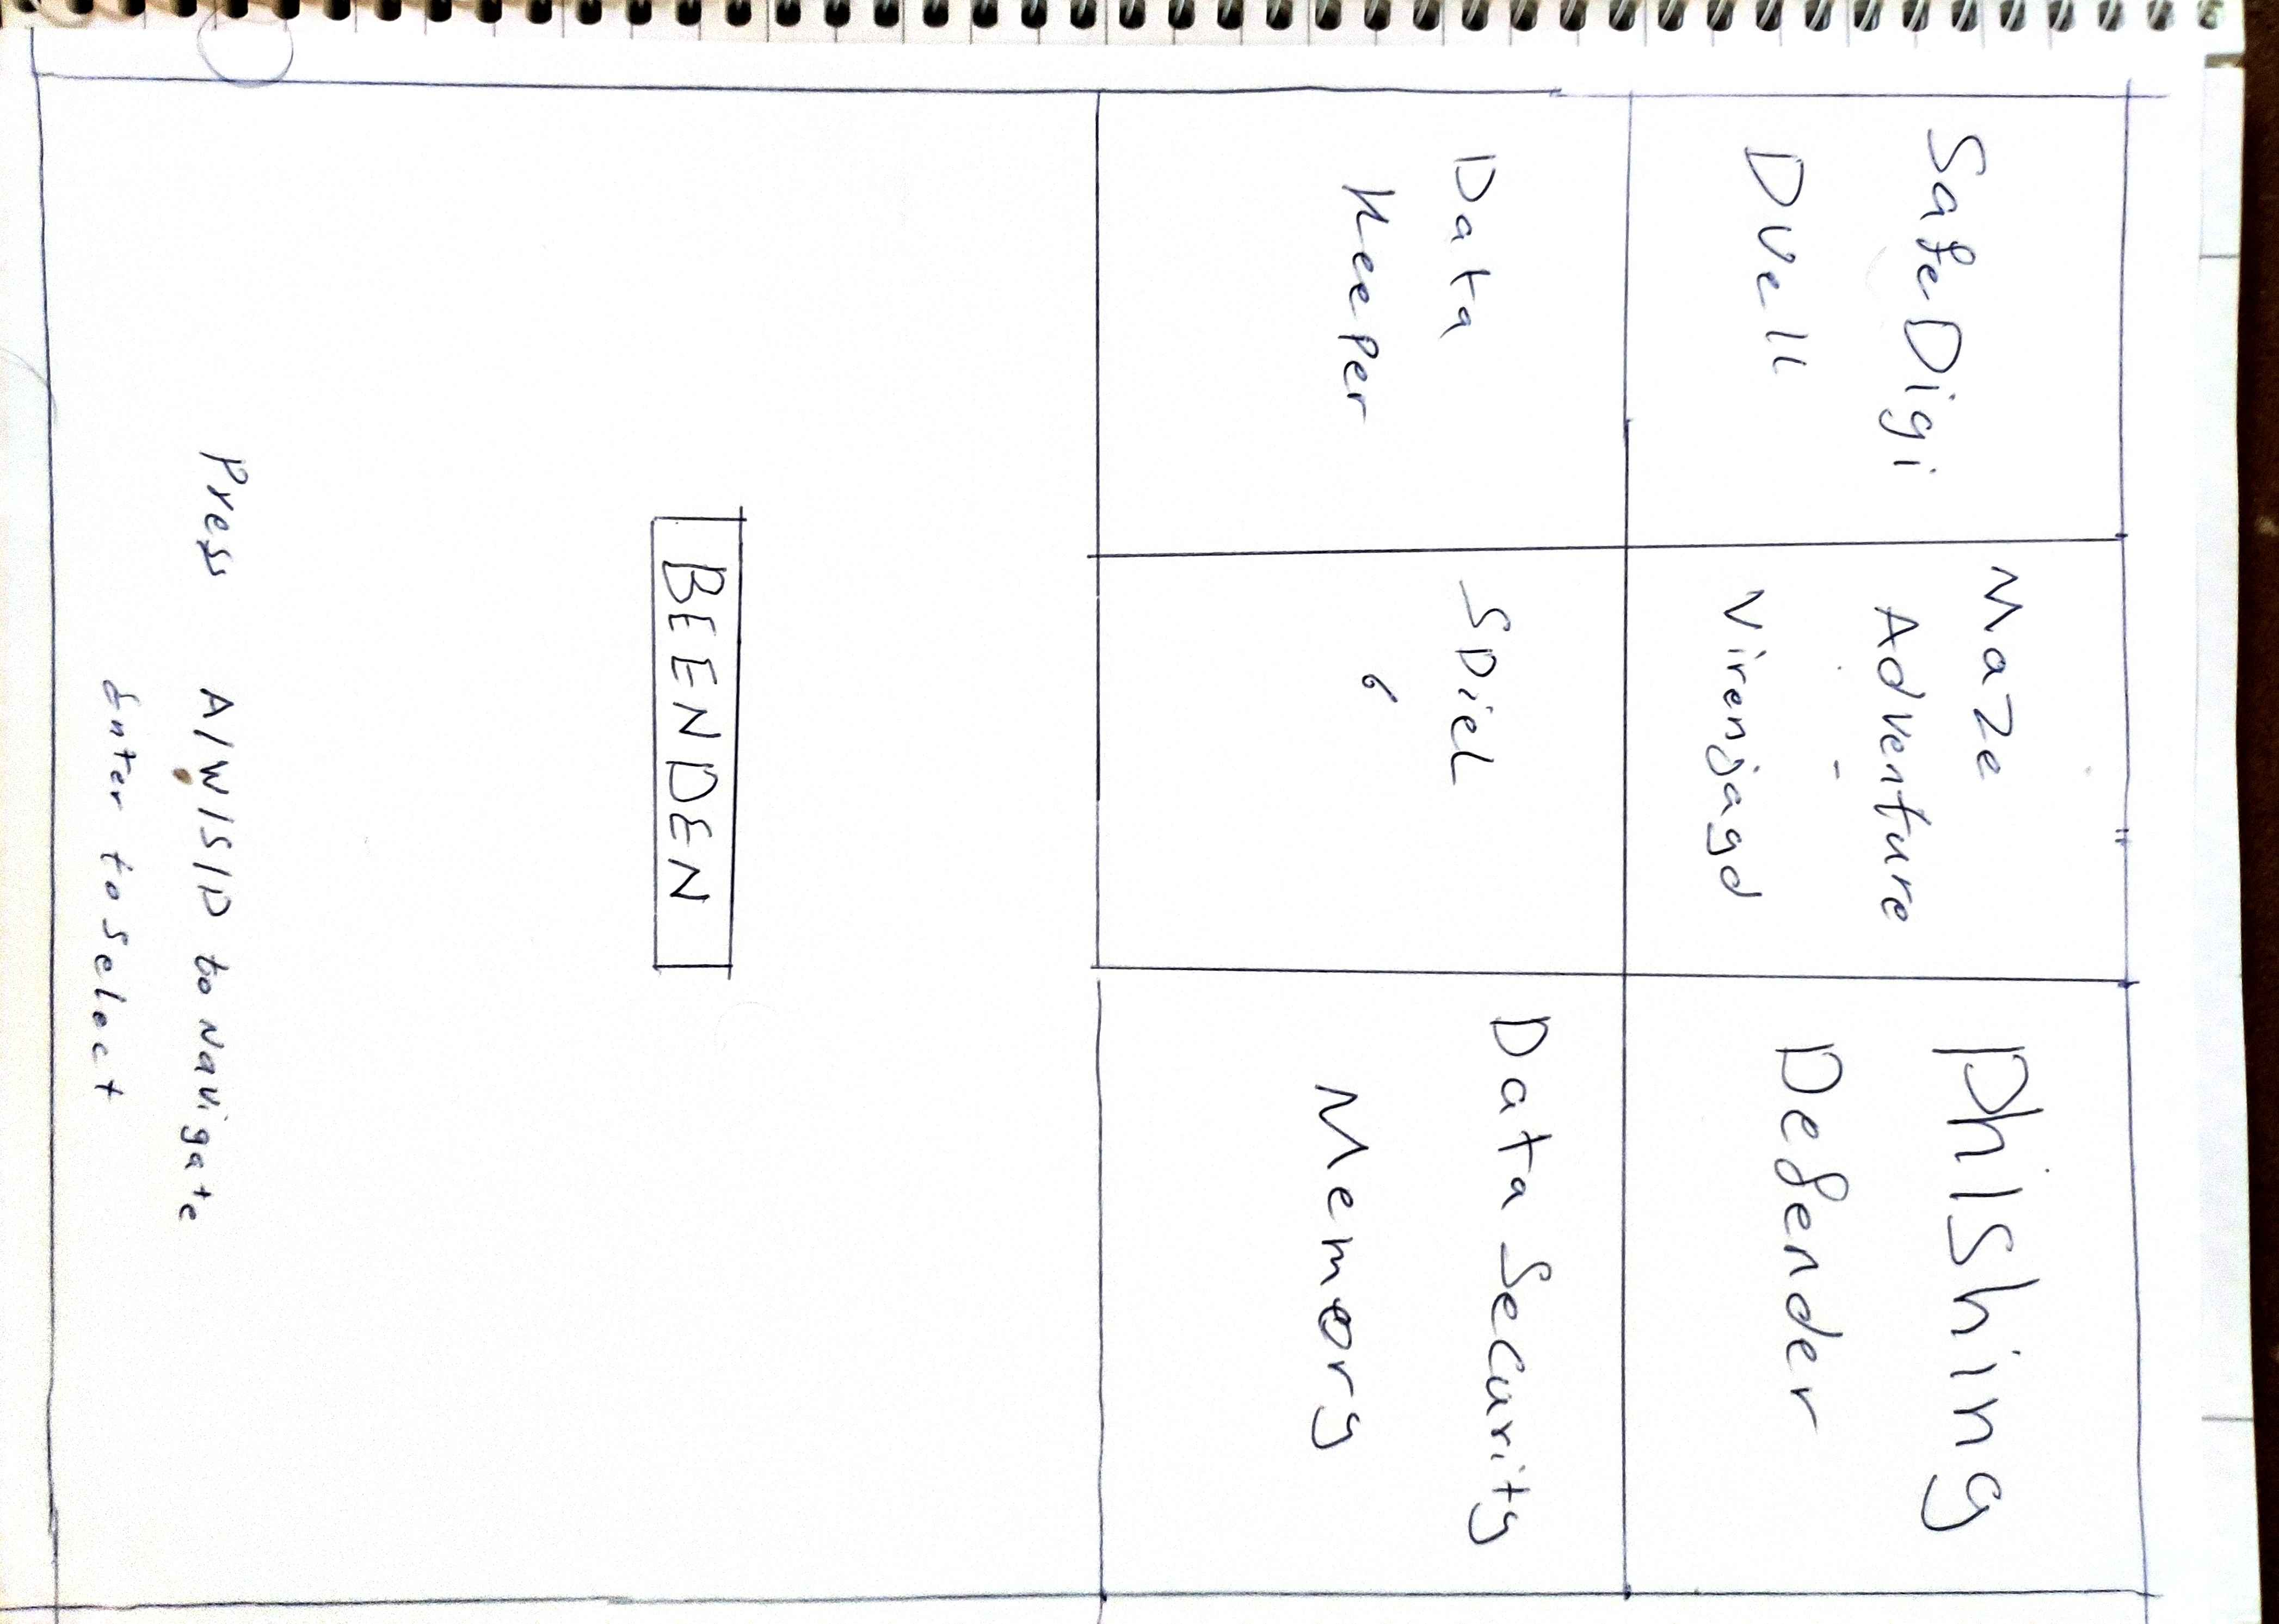 SafeDigi
Duell
Maze
Adventure
Virenjagd
Phishing
Defender
Data
Keeper
Spiel
6
Data Security
Memory
BEENDEN
Press A/W/S/D to Navigate
Enter to select